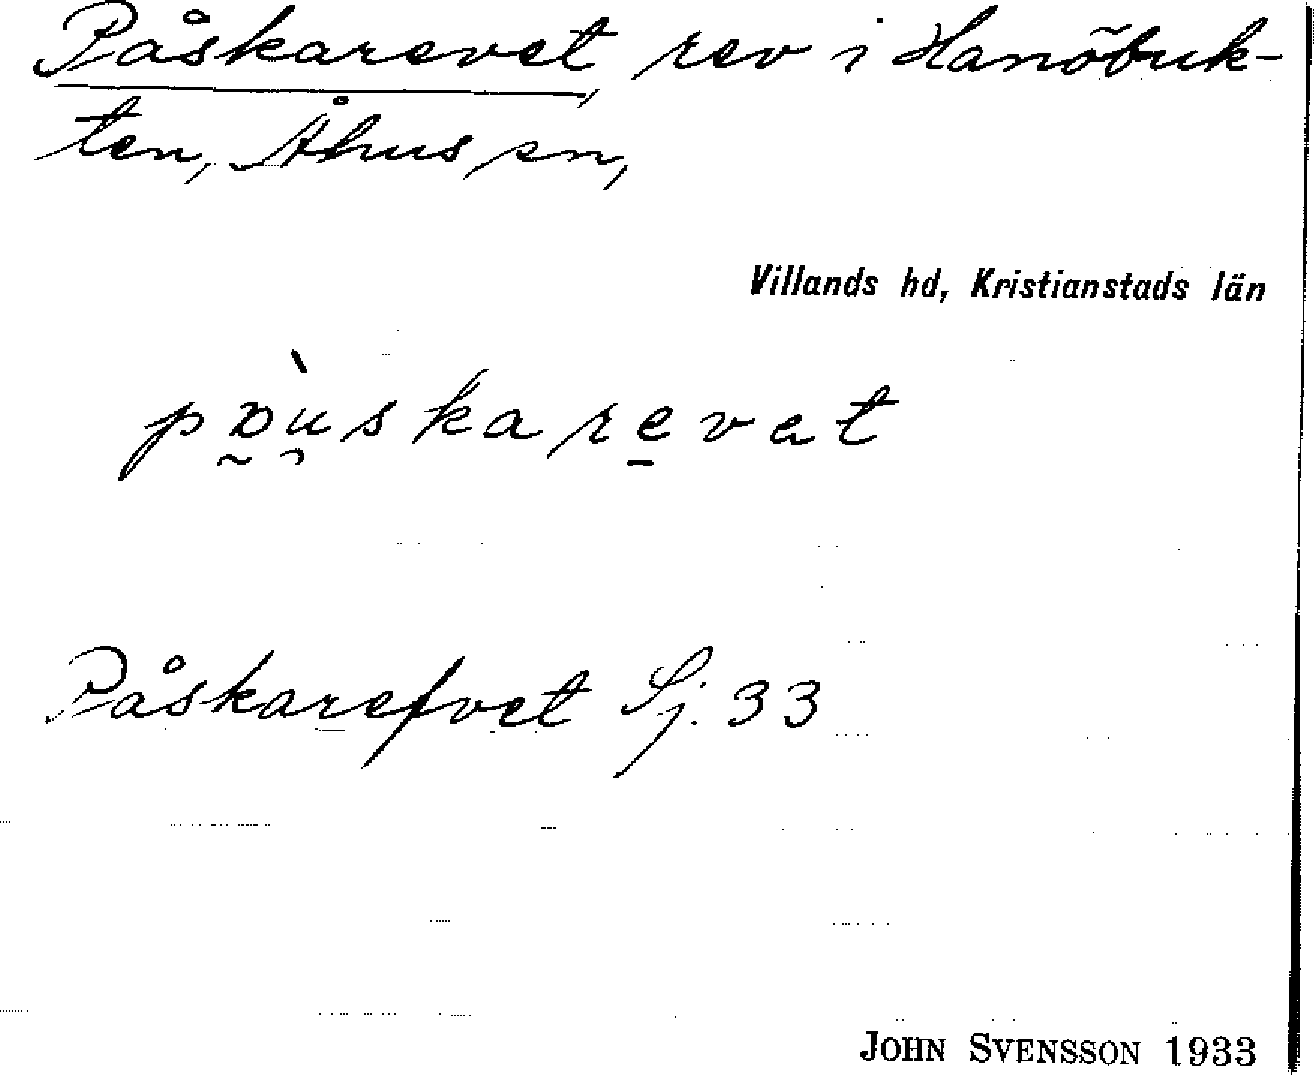 Påskarevet, rev i Hanöbuk-
ten, Åhus sn,
Villands hd, Kristianstads län
pɒ̰̀u̯skare̠vet
Påskarefvet Sj. 33
JOHN SVENSSON 1933